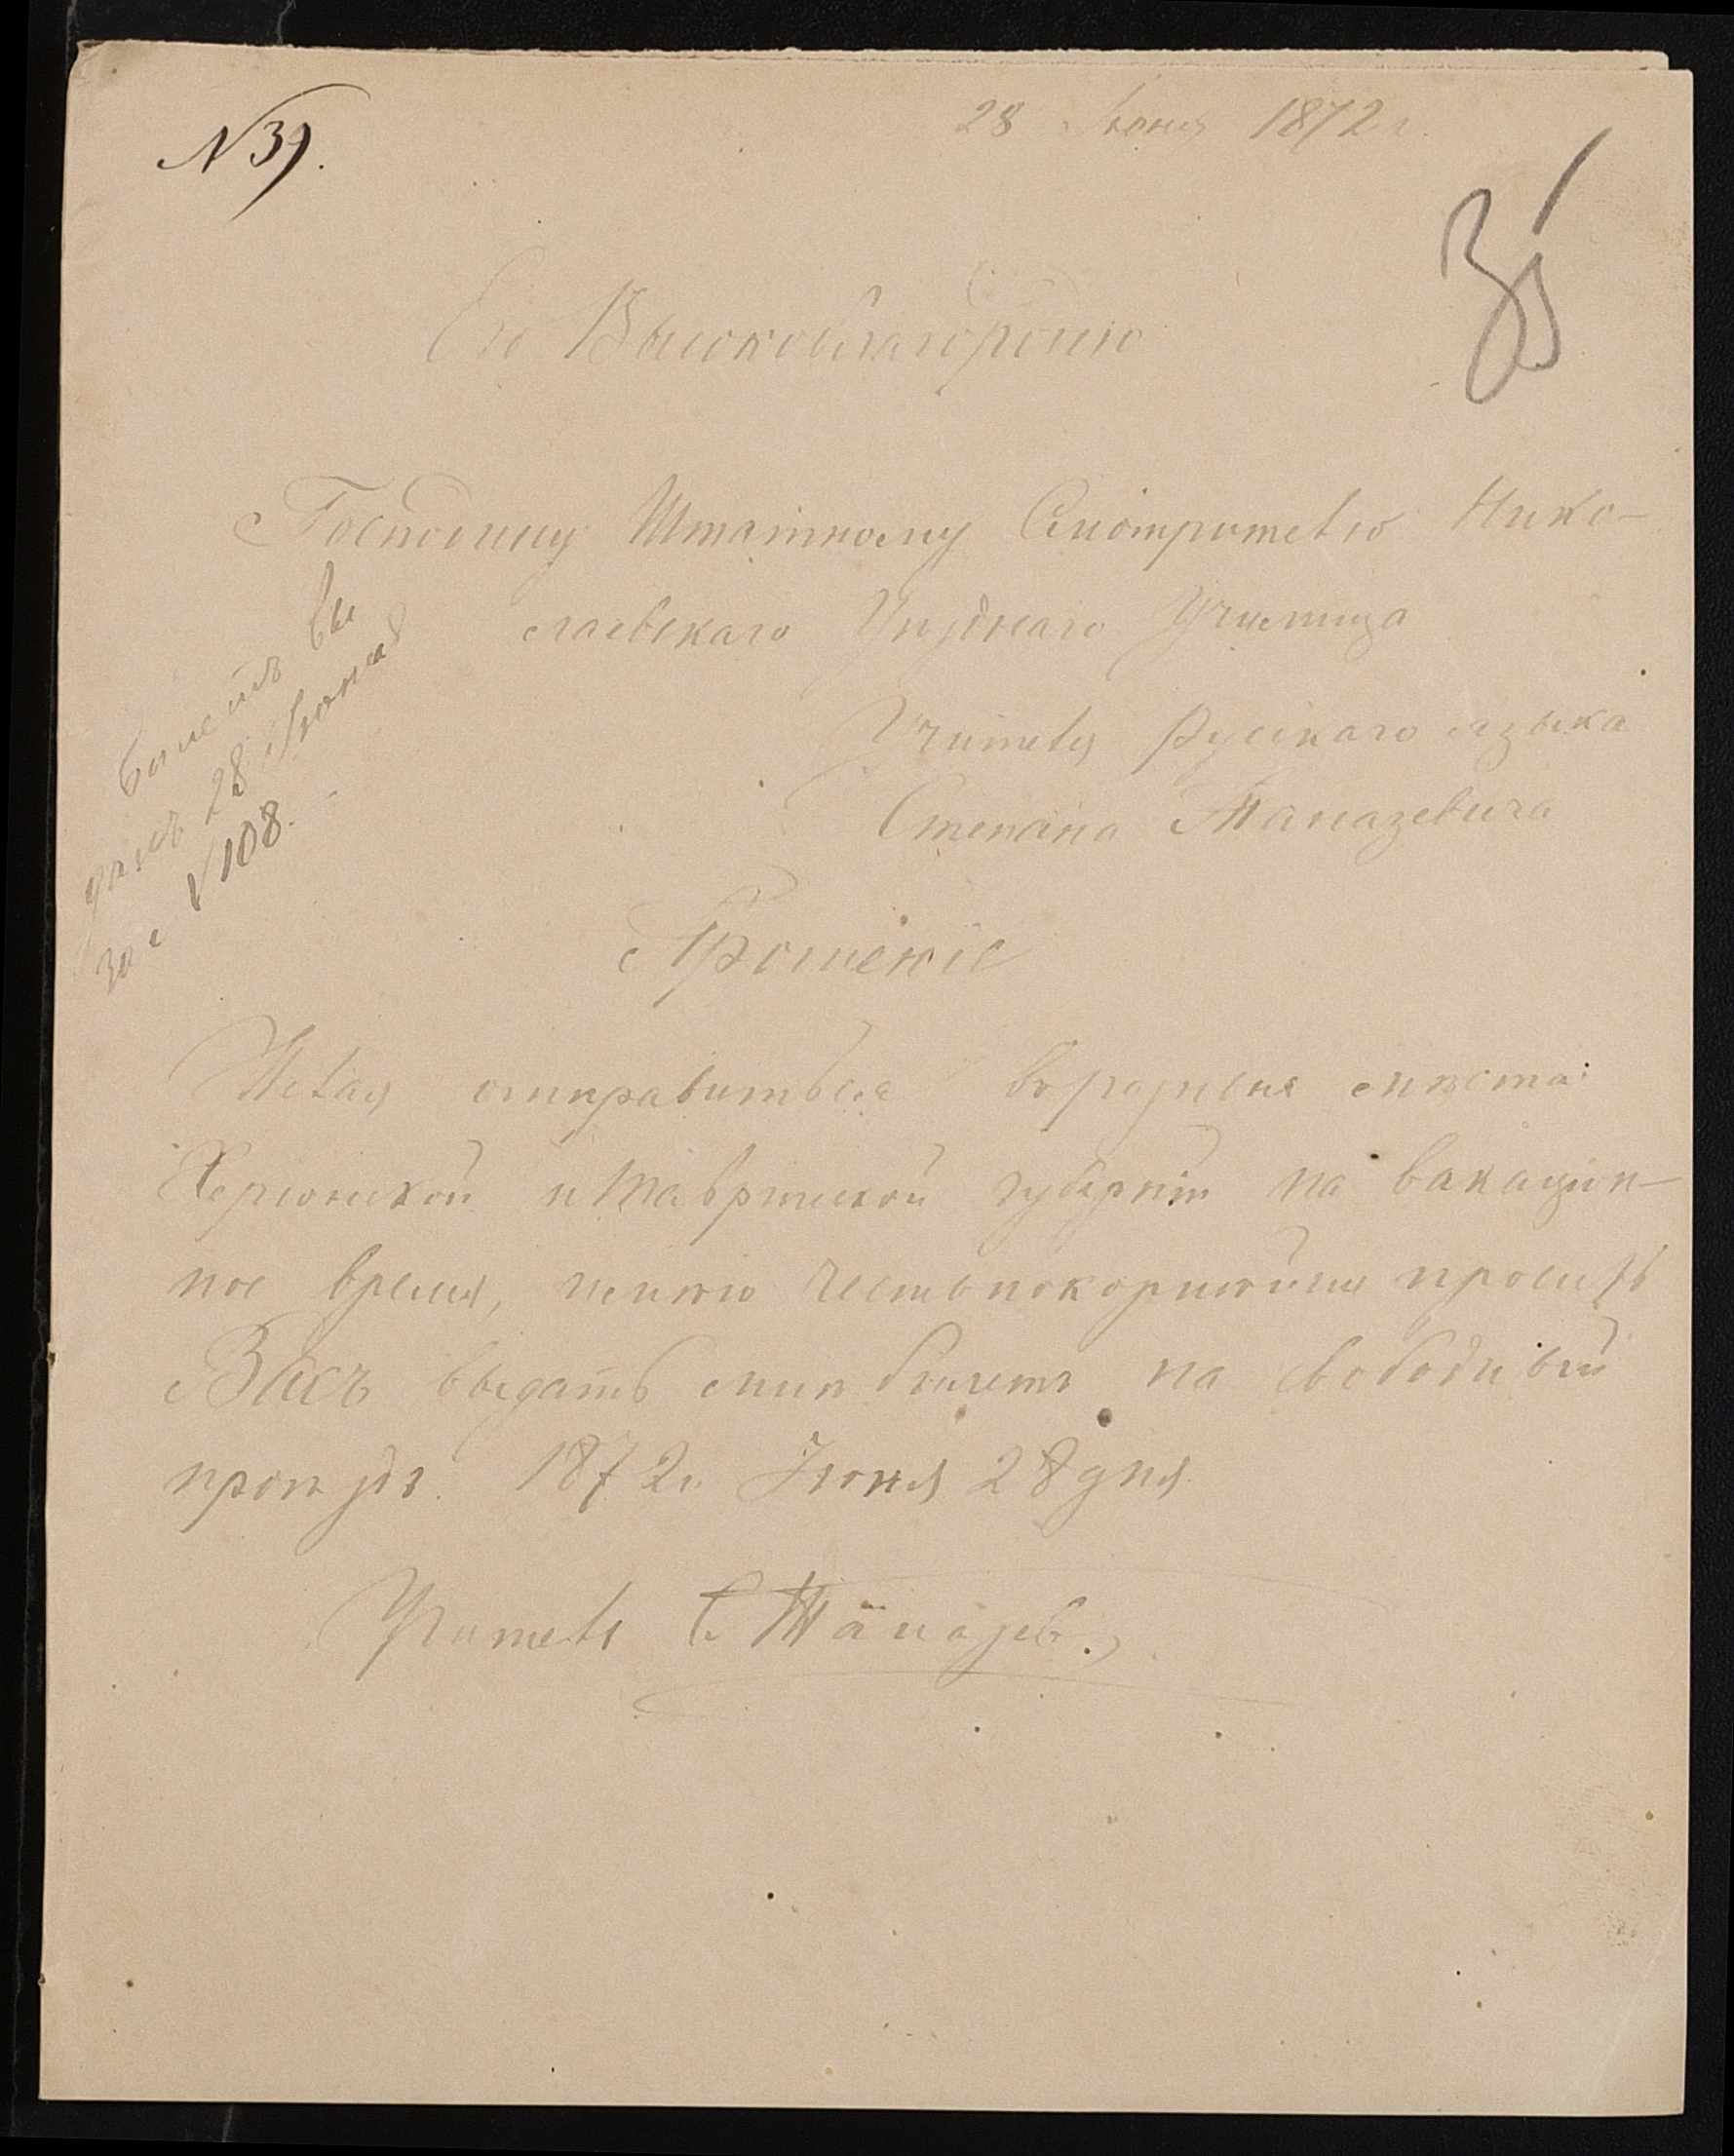 N 39.
28 Июня 1872 г.
35
Его Высокоблагородию
Господину Штатному Смотрителю Нико-
лаевскаго Уѣзднаго Училища
Учителя Русскаго языка
Степана
Билетъ вы
данъ 28 Июня
за № 108.
Прошеніе
Желая отправиться въ разныя мѣста
Херсонской и Таврической губерній на вакаціон-
ное время, имѣю честь покорнѣйше просить
Васъ выдать мнѣ билетъ на свободный
проѣздъ. 1872 г. Июня 28 дня
Учитель С.